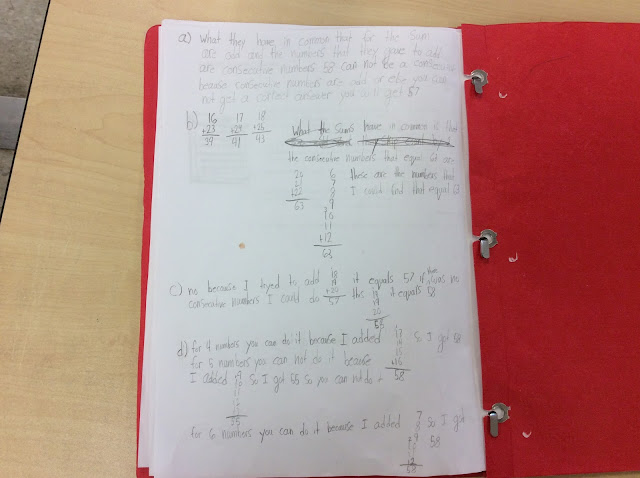 a) What they have in common that for the Sum
are odd and the numbers that they gave to add
are consecutive numbers 58 can not be a consecutive
because consecutive numbers are odd or else you can
not get a correct answer you will get 57
b) 16 17 18
+23 +24 +25
39 41 43
What the Sums have in common is that
the consecutive numbers that equal 63 are
20 6 these are the numbers that
7 I could find that equal 63
63 9
10
11
+12
63
c) no because I tryed to add 18 it equals 57 if there was no
19
+20
57
consecutive numbers I could do this 18 it equals 58
19
20
d) for 4 numbers you can do it because I added 13 so I got 58
15
+16
58
for 5 numbers you can not do it because
I added so I got 55 so you can not do it
55
for 6 numbers you can do it because I added 7 so I got
58